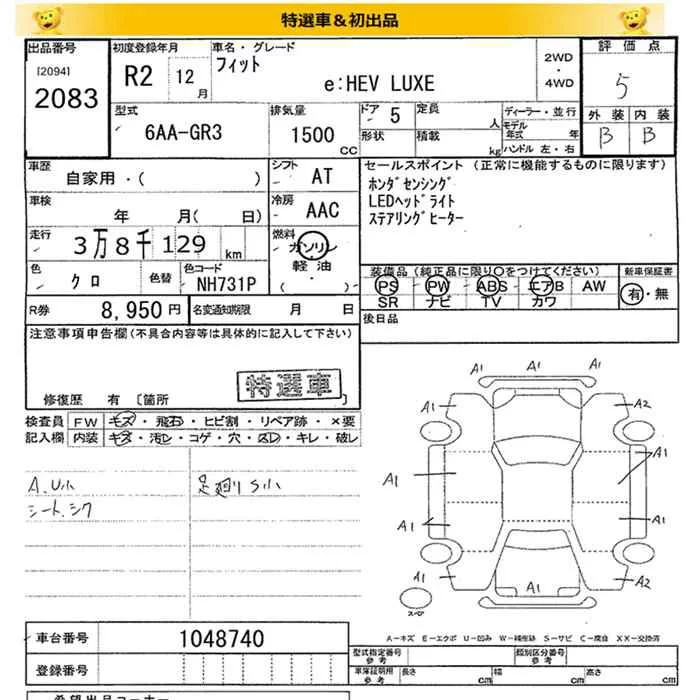 特選車&初出品
出品番号
[2094]
2083
初度登録年月
R2 12月
車名・グレード
フィット
e:HEV LUXE
2WD
・
4WD
評価点
5
外装 内装
B B
型式
6AA-GR3
排気量
1500 CC
ドア 5
定員 人
形状
積載 kg
ディーラー・並行
モデル年式 年
ハンドル 左・右
車歴
自家用・( )
シフト
AT
セールスポイント (正常に機能するものに限ります)
ホンダセンシング
LEDヘッドライト
ステアリングヒーター
車検
年 月( 日)
冷房
AAC
走行
3万8千129 km
燃料
ガソリン
軽油・
( )
色
クロ
色替
色コード
NH731P
装備品(純正品に限り○をつけてください)
PS PW ABS エアB AW
SR ナビ TV カワ
新車保証書
有・無
R券
8,950円
名変通知期限 月 日
後日品
注意事項申告欄(不具合内容等は具体的に記入して下さい)
特選車
修復歴 有 [箇所 ]
検査員記入欄
FW キズ・飛石・ヒビ割・リペア跡・×要
内装 キズ・汚レ・コゲ・穴・スレ・キレ・破レ
A.U小
シート.シワ
足廻りS小
A1
A1
A1
A1
A2
A1
A1
A1
A1
A1
A1
A2
スペア
A-キズ E-エクボ U-凹み W-補修跡 S-サビ C-腐食 XX-交換済
車台番号
1048740
登録番号
型式指定番号
参考
類別区分番号
参考
車庫証明用
参考
長さ cm
幅 cm
高さ cm
希望出品コーナー